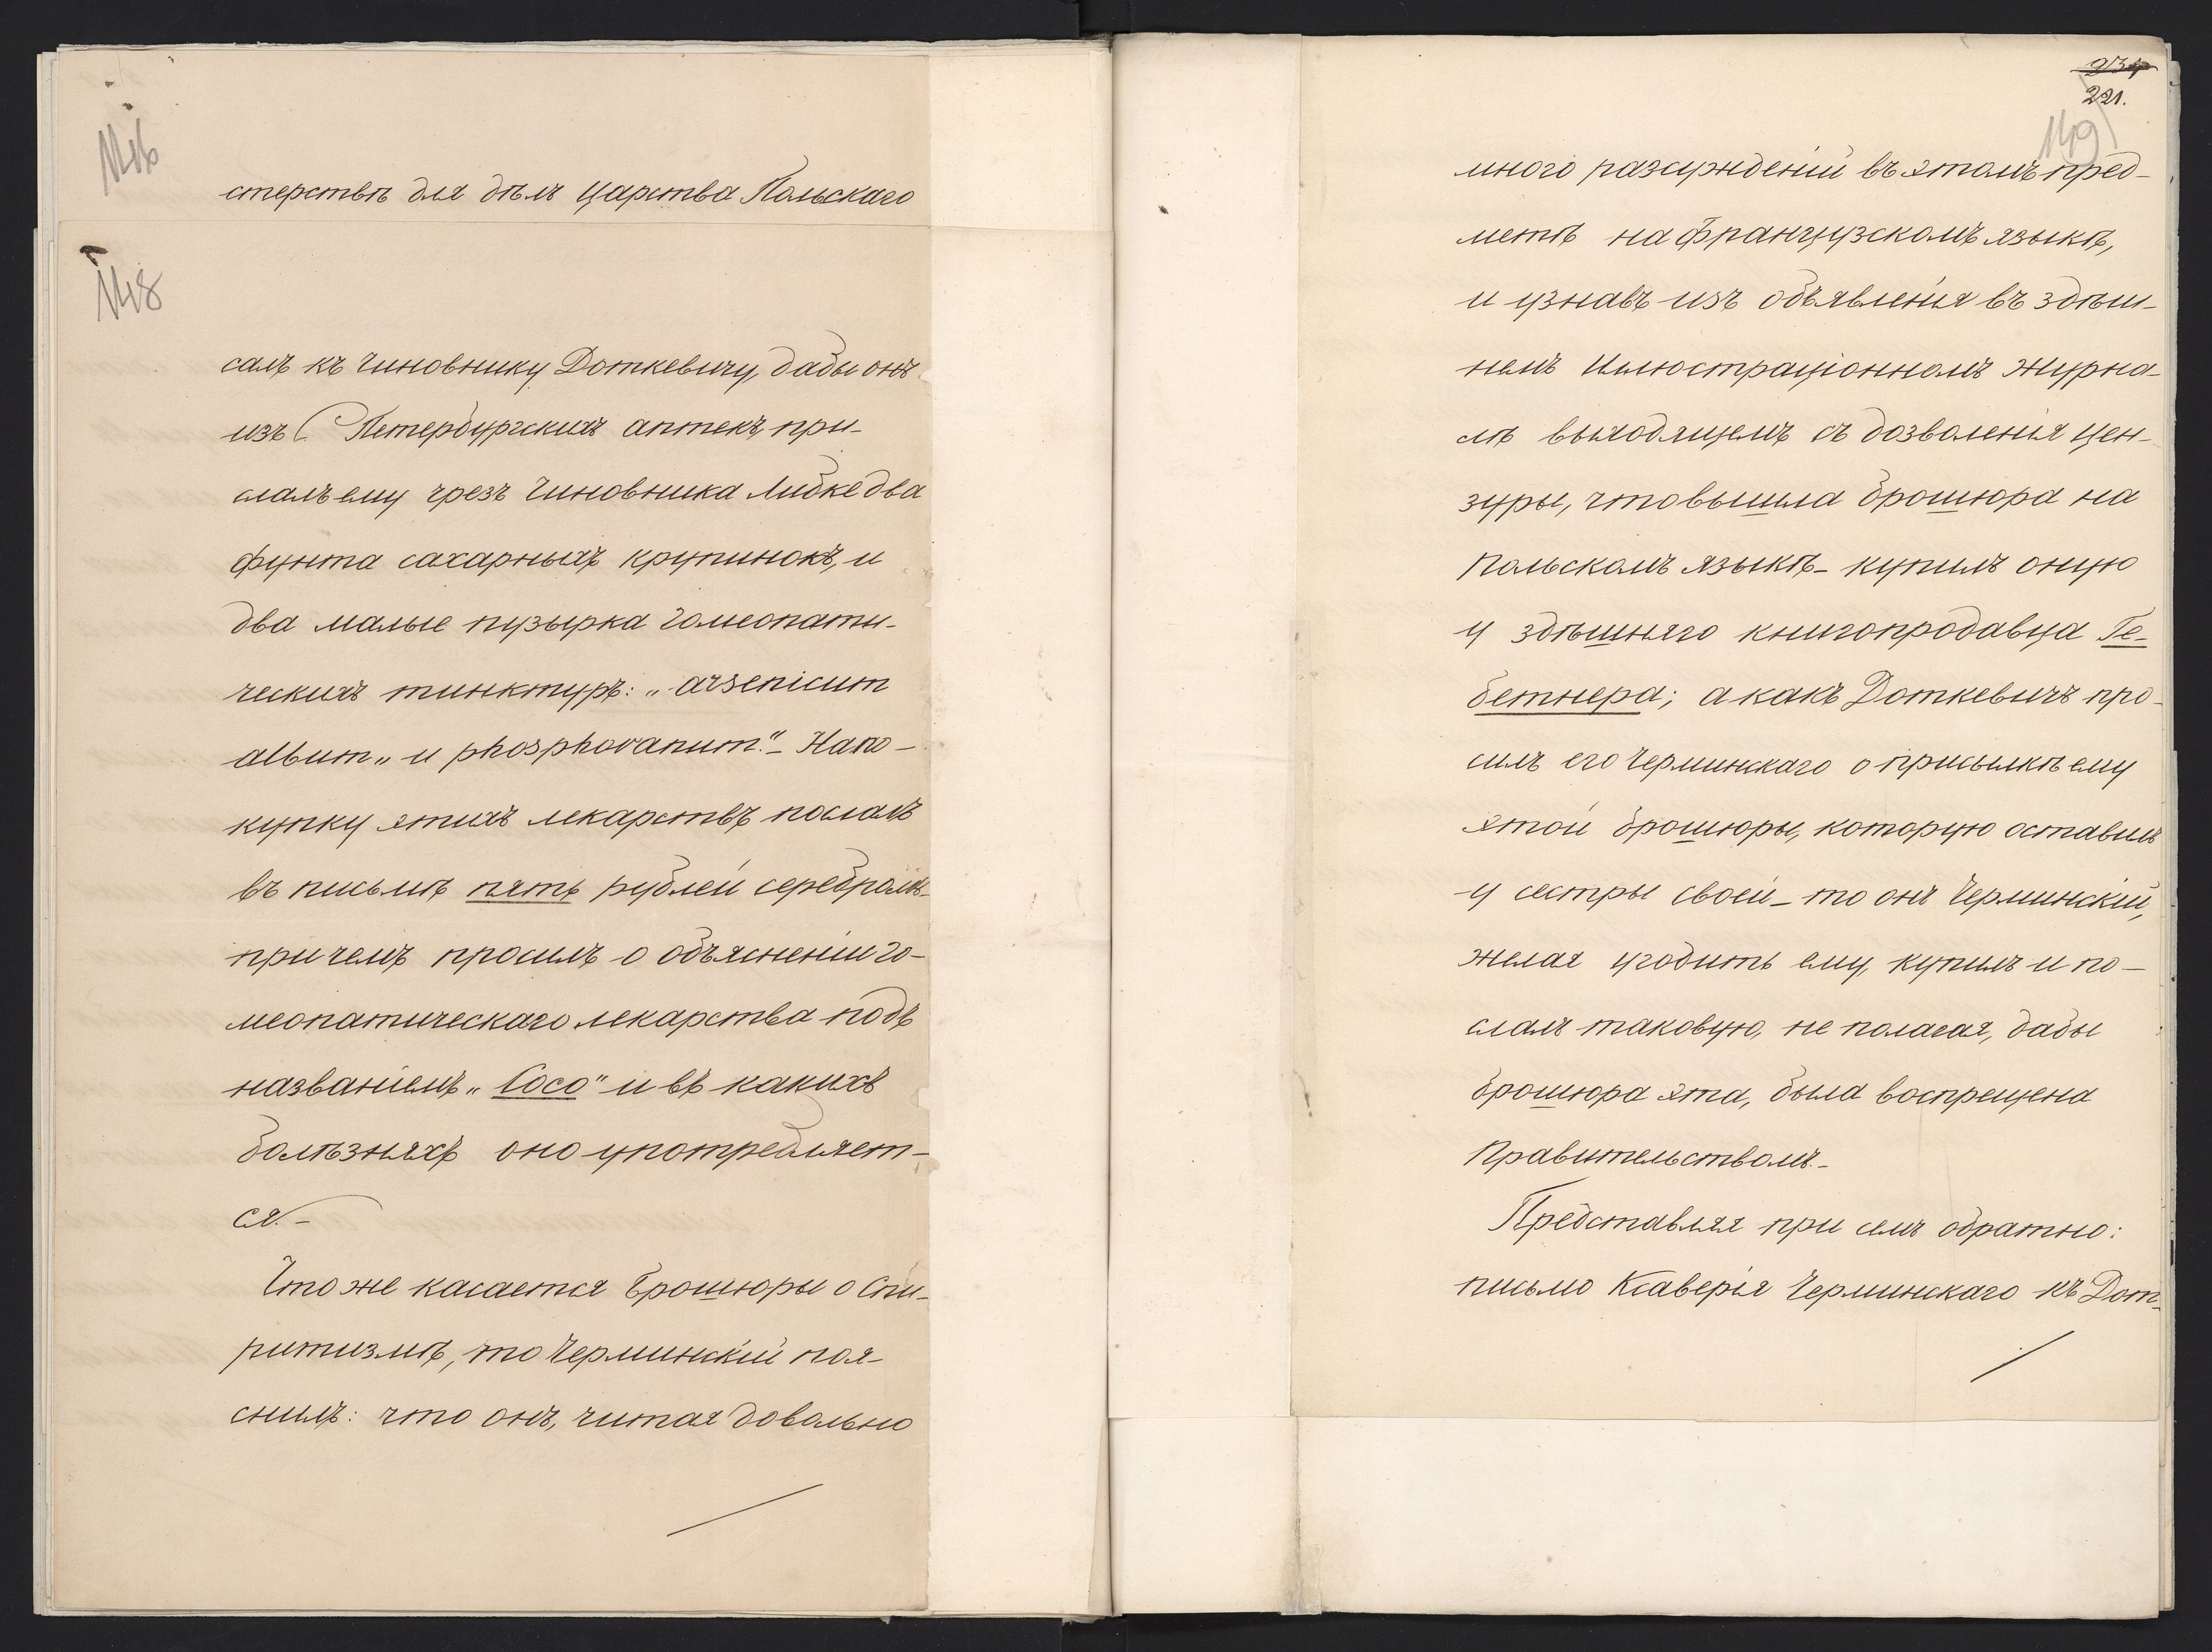 146
стерствѣ для дѣлъ Царства Польскаго
148
салъ къ Чиновнику Доткевичу, дабы онъ
изъ С. Петербургскихъ аптекъ, при-
слалъ ему чрезъ Чиновника Либке два
фунта сахарныхъ крупинокъ, и
два малые пузырка гомеопати-
ческихъ тинктуръ: „arsenicum
album„ и phosphoranum.“– На по-
купку этихъ лекарствъ послалъ
въ письмѣ пять рублей серебромъ-
при чемъ просилъ о объясненіи го-
меопатическаго лекарства подъ
названіемъ „Coco“ и въ какихъ
болѣзняхъ оно употребляет-
ся.–
Что же касается Брошюры о Спи-
ритизмѣ, то Черминскій поя-
снилъ: что онъ, читая довольно
234
221.
149
много разсужденій въ этомъ пред-
метѣ на Французскомъ языкѣ,
и узнавъ изъ объявленія въ здѣш-
немъ Иллюстраціонномъ Журна-
лѣ выходящемъ съ дозволенія Цен-
зуры, что вышла брошюра на
Польскомъ языкѣ – купилъ оную
у здѣшняго книгопродавца Ге-
бетнера; а какъ Доткевичъ про-
силъ его Черминскаго о присылкѣ ему
этой брошюры, которую оставилъ
у сестры своей – то онъ Черминскій,
желая угодить ему, купилъ и по-
слалъ таковую, не полагая, дабы
брошюра эта, была воспрещена
Правительствомъ.–
Представляя при семъ обратно:
письмо Ксаверія Черминскаго къ Дот-